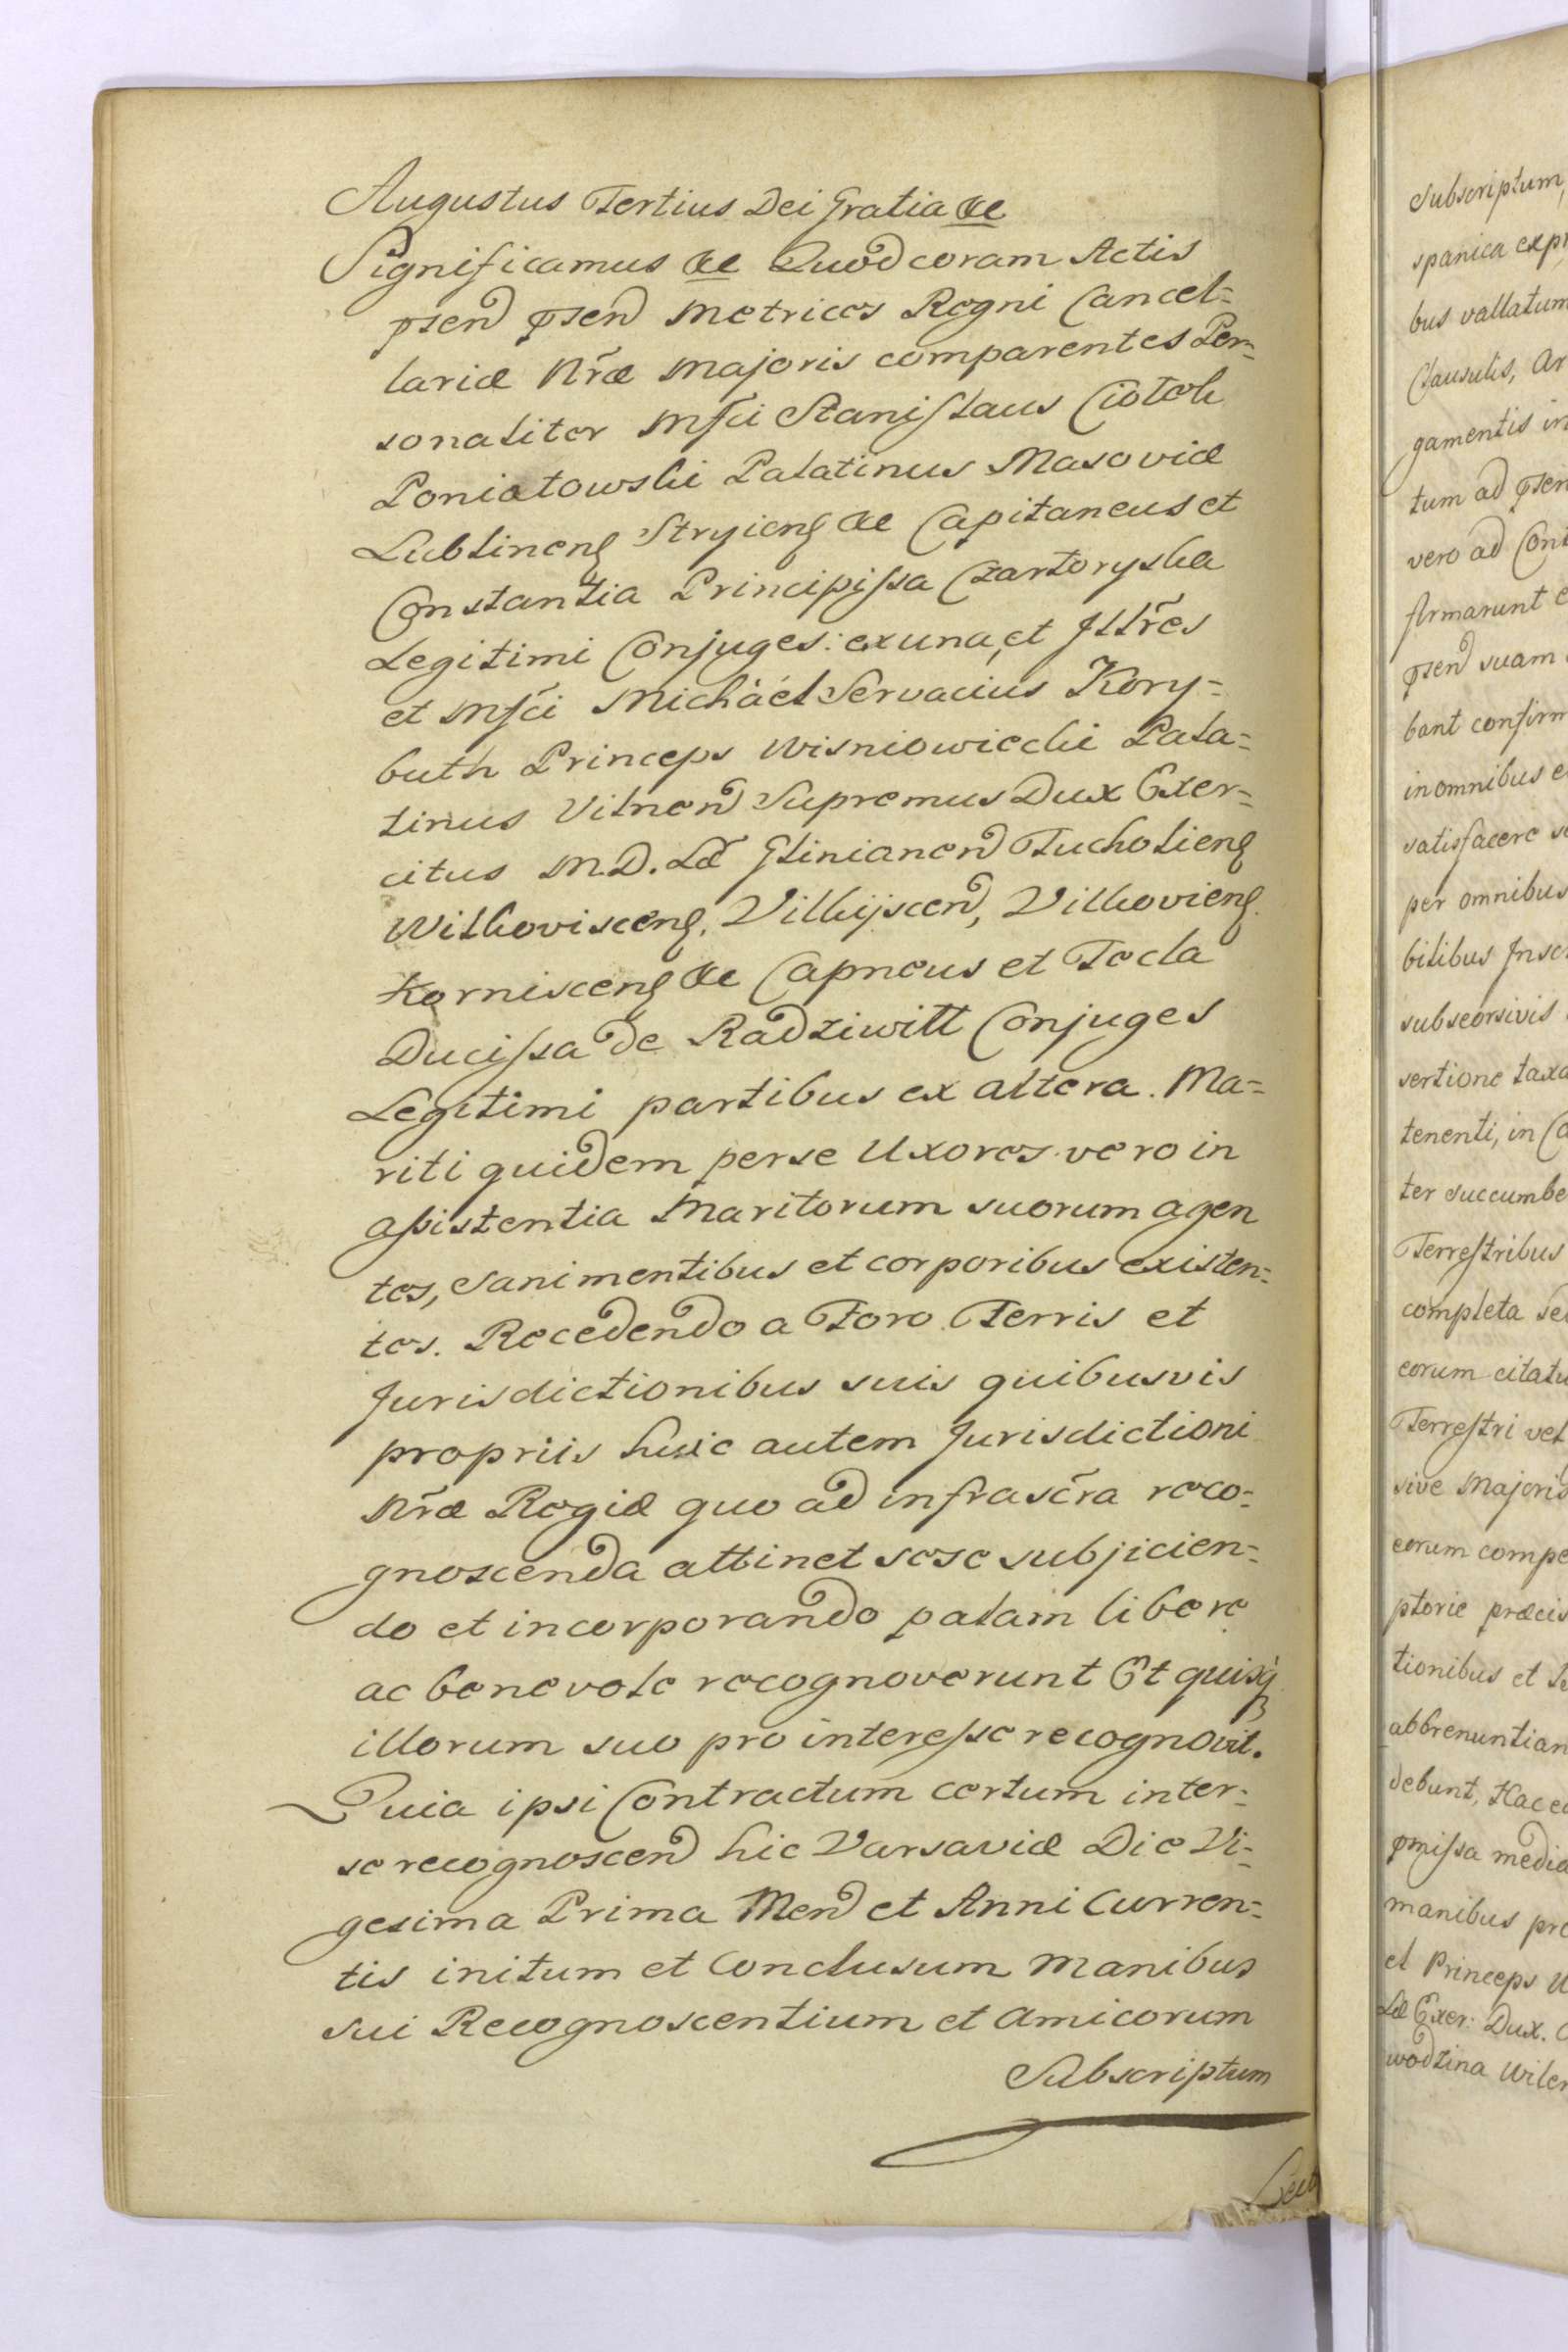 Augustus Tertius Dei Gratia &c
Significamus &c Quod coram Actis
pñsen pñsen Metrices Regni Cancel=
lariæ Nr̃æ Majoris comparentes Per=
sonaliter Mfci Stanislaus Ciołek
Poniatowski Palatinus Masoviæ
Lublinen Stryien &c Capitaneus et
Constantia Principissa Czartoryska
Legitimi Conjuges: ex una, et Jllr̃es
et Mfci Michaël Servacius Kory=
buth Princeps Wisniowiecki Pala=
tinus Vilnen Supremus Dux Exer=
citus M.D.L̃æ Glinianen Tucholien
Wilkoviscen, Vilkijscen, Vilkovien
Korniscen &c Capneus et Tecla
Ducissa de Radziwill Conjuges
Legitimi partibus ex altera. Ma=
riti quidem per se Uxores vero in
assistentia Maritorum suorum agen
tes, Sani mentibus et corporibus existen=
tes. Recedendo a Foro Terris et
Jurisdictionibus suis quibusvis
propriis huic autem Jurisdictioni
Nr̃æ Regiæ quo ad infrascr̃a reco=
gnoscenda attinet sese subjicien=
do et incorporando palam libere
ac benevole recognoverunt Et quisq
illorum suo pro interesse recognovit.
Quia ipsi Contractum certum inter=
se recognoscen hic Varsaviæ Die Vi=
gesima Prima Men et Anni Curren=
tis initum et Conclusum Manibus
sui Recognoscentium et Amicorum
Subscriptum
Subscriptum,
spanica exp
bus vallatum
Clausulis, Ar
gamentis in
tum ad pñsen
vero ad Cont
firmarunt e
pñsen suam
bant confirm
in omnibus e
satisfacere se
per omnibus
bilibus Jnsc
subseorsivis
sertione taxa
tenenti, in Ca
ter succumbe
Terrestribus
completa se
eorum citatu
Terrestri vel
sive Majoris
eorum compe
ptorie præcis
tionibus et
abbrenuntian
debunt, Hac e
pmissa media
manibus pro
et Princeps W
Læ Exer: Dux. C
wodzina Wilen